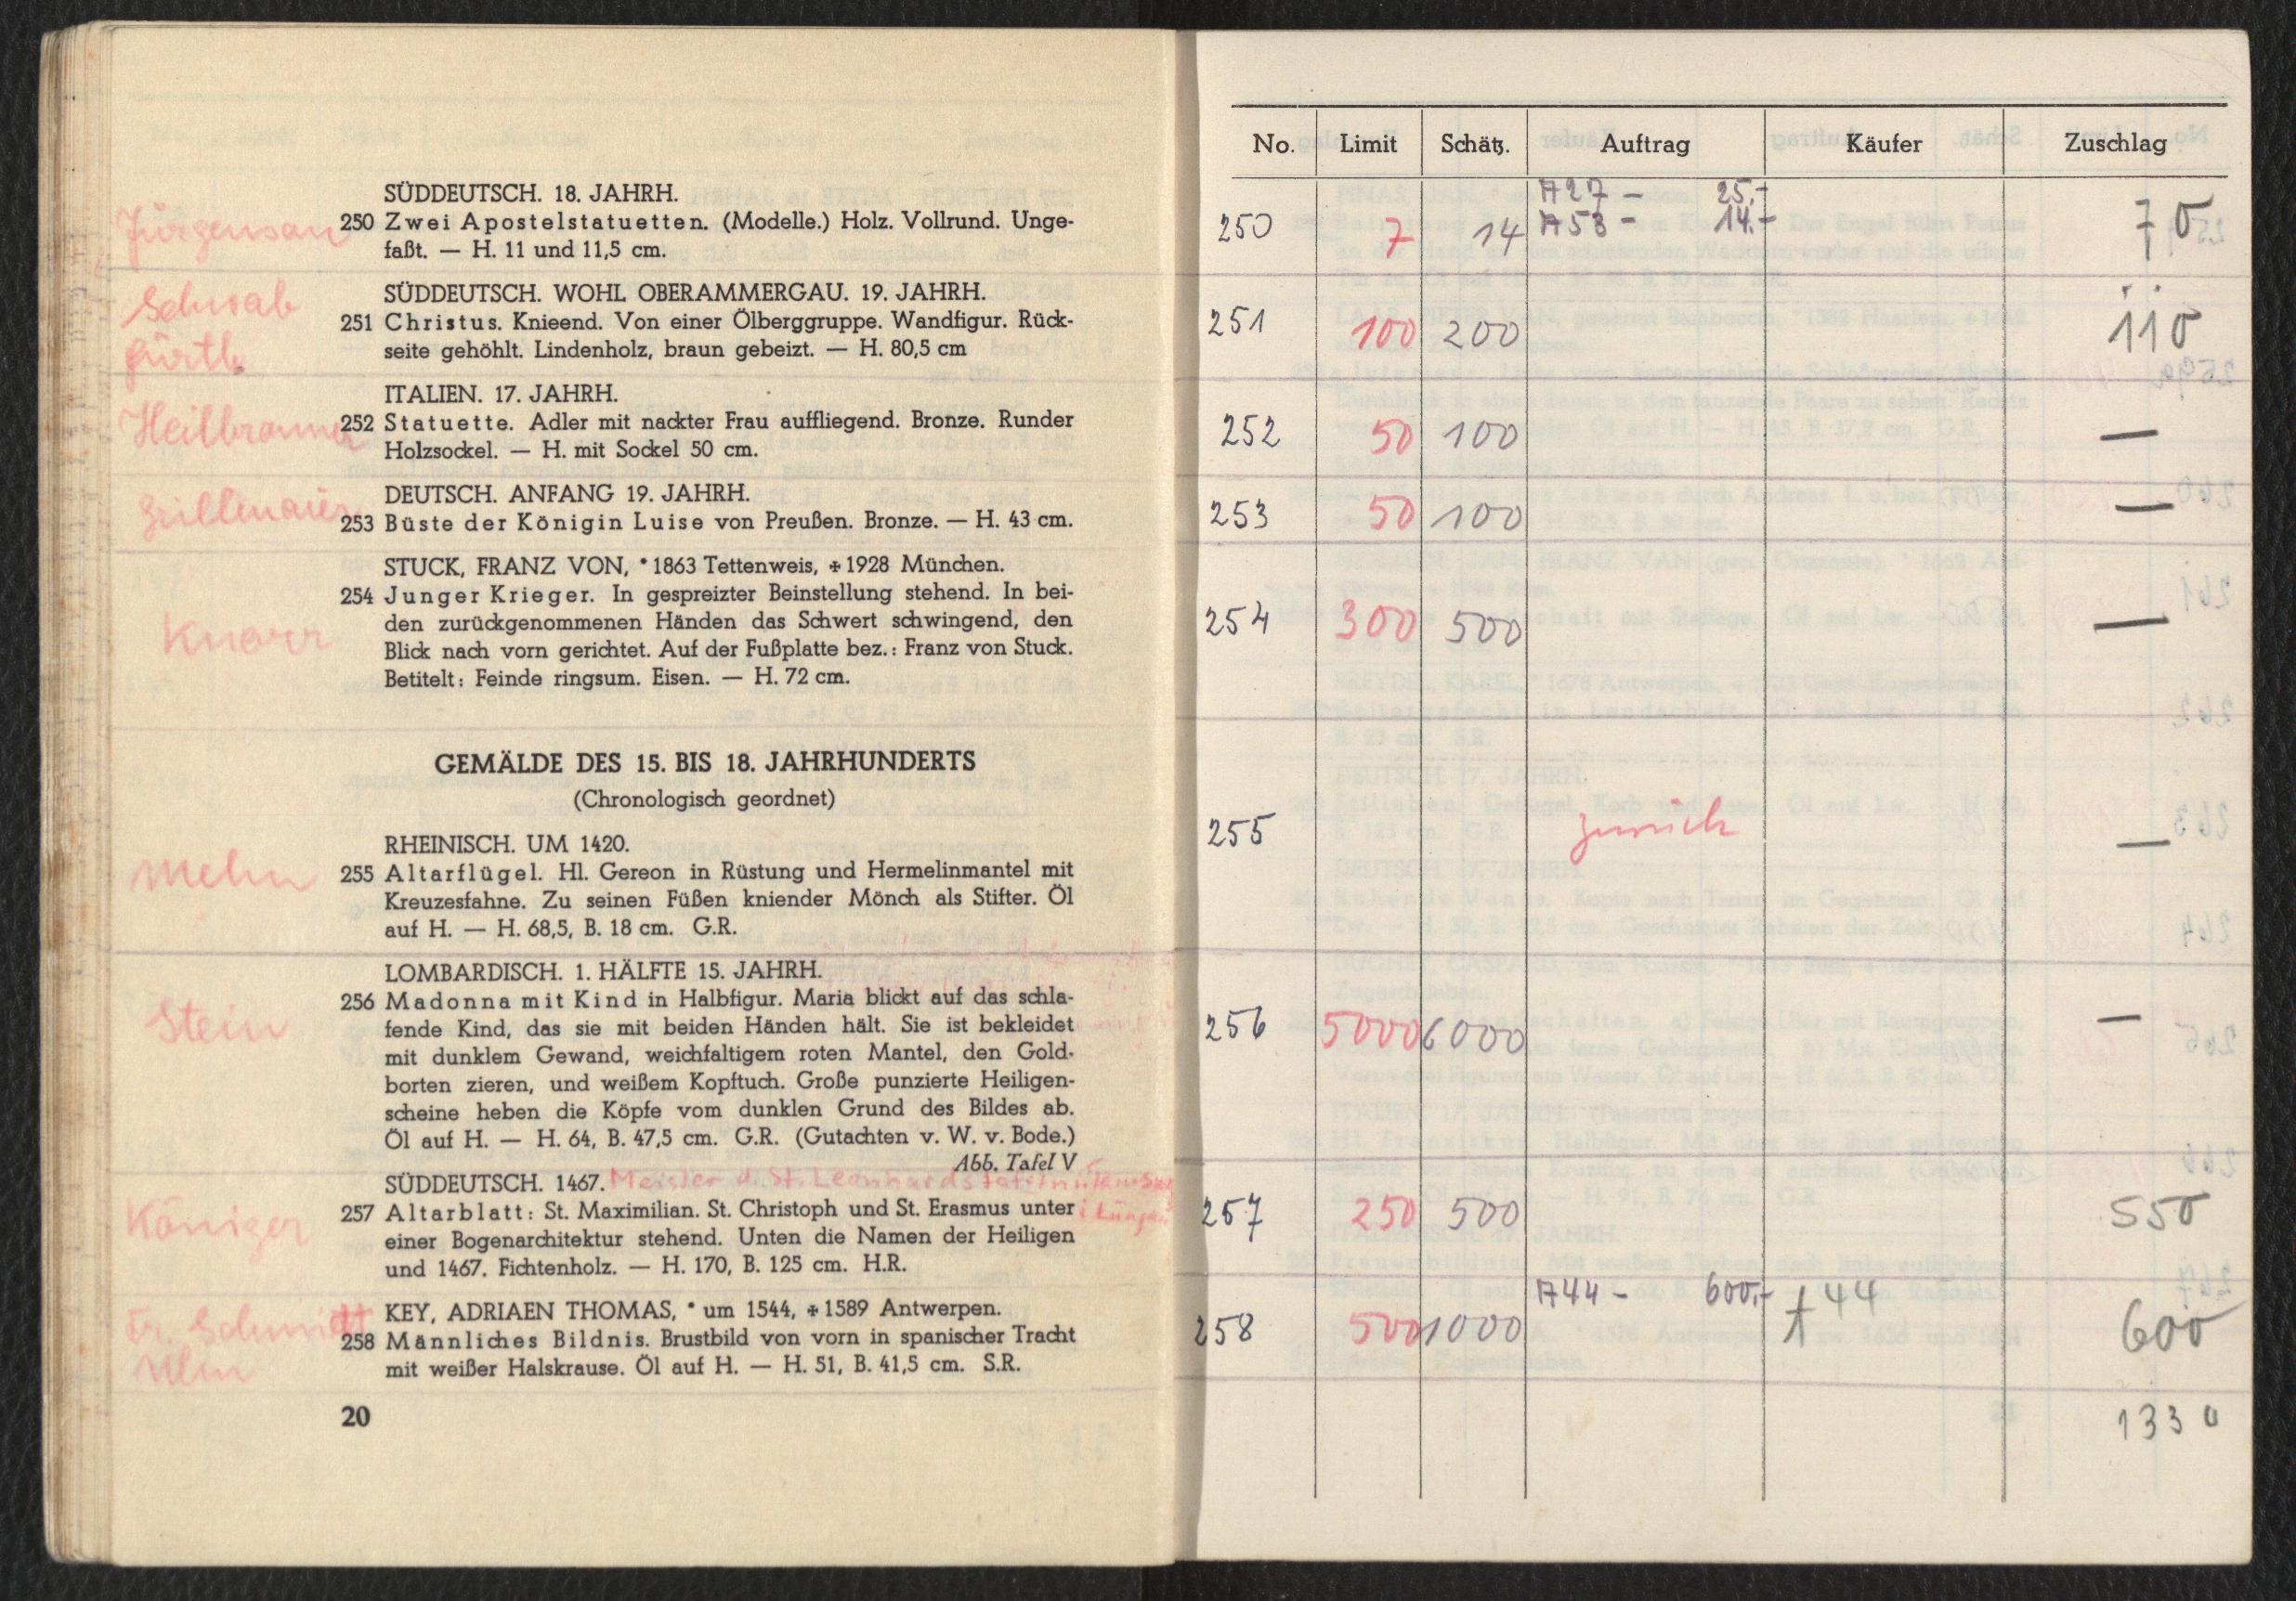 SÜDDEUTSCH. 18. JAHRH.
Jürgensen
250 Zwei Apostelstatuetten. (Modelle.) Holz. Vollrund. Unge-
faßt. — H. 11 und 11,5 cm.
Schwab
SÜDDEUTSCH. WOHL OBERAMMERGAU. 19. JAHRH.
251 Christus. Knieend. Von einer Ölberggruppe. Wandfigur. Rück-
seite gehöhlt. Lindenholz, braun gebeizt. — H. 80,5 cm
ITALIEN. 17. JAHRH.
Heilbronner
252 Statuette. Adler mit nackter Frau auffliegend. Bronze. Runder
Holzsockel. — H. mit Sockel 50 cm.
DEUTSCH. ANFANG 19. JAHRH.
Grillmaier
253 Büste der Königin Luise von Preußen. Bronze. — H. 43 cm.
STUCK, FRANZ VON, * 1863 Tettenweis, + 1928 München.
254 Junger Krieger. In gespreizter Beinstellung stehend. In bei-
Knorr
den zurückgenommenen Händen das Schwert schwingend, den
Blick nach vorn gerichtet. Auf der Fußplatte bez.: Franz von Stuck.
Betitelt: Feinde ringsum. Eisen. — H. 72 cm.
GEMÄLDE DES 15. BIS 18. JAHRHUNDERTS
(Chronologisch geordnet)
RHEINISCH. UM 1420.
Mehn
255 Altarflügel. Hl. Gereon in Rüstung und Hermelinmantel mit
Kreuzesfahne. Zu seinen Füßen kniender Mönch als Stifter. Öl
auf H. — H. 68,5, B. 18 cm. G.R.
LOMBARDISCH. 1. HÄLFTE 15. JAHRH.
256 Madonna mit Kind in Halbfigur. Maria blickt auf das schla-
Stein
fende Kind, das sie mit beiden Händen hält. Sie ist bekleidet
mit dunklem Gewand, weichfaltigem roten Mantel, den Gold-
borten zieren, und weißem Kopftuch. Große punzierte Heiligen-
scheine heben die Köpfe vom dunklen Grund des Bildes ab.
Öl auf H. — H. 64, B. 47,5 cm. G.R. (Gutachten v. W. v. Bode.)
Abb. Tafel V
SÜDDEUTSCH. 1467. Meister d. St. Leonhards
Königer
257 Altarblatt: St. Maximilian. St. Christoph und St. Erasmus unter
einer Bogenarchitektur stehend. Unten die Namen der Heiligen
und 1467. Fichtenholz. — H. 170, B. 125 cm. H.R.
Fr. Schmidt
KEY, ADRIAEN THOMAS, * um 1544, + 1589 Antwerpen.
258 Männliches Bildnis. Brustbild von vorn in spanischer Tracht
Ulm
mit weißer Halskrause. Öl auf H. — H. 51, B. 41,5 cm. S.R.
20
No. Limit Schätz. Auftrag Käufer Zuschlag
A27 — 25.-
250 7 14 A53 — 14.- 70
251 100 200 110
252 50 100 —
253 50 100 —
254 300 500 —
255 zurück —
256 5000 6000 —
257 250 500 550
A44 — 600.- 44
258 500 1000 600
1330